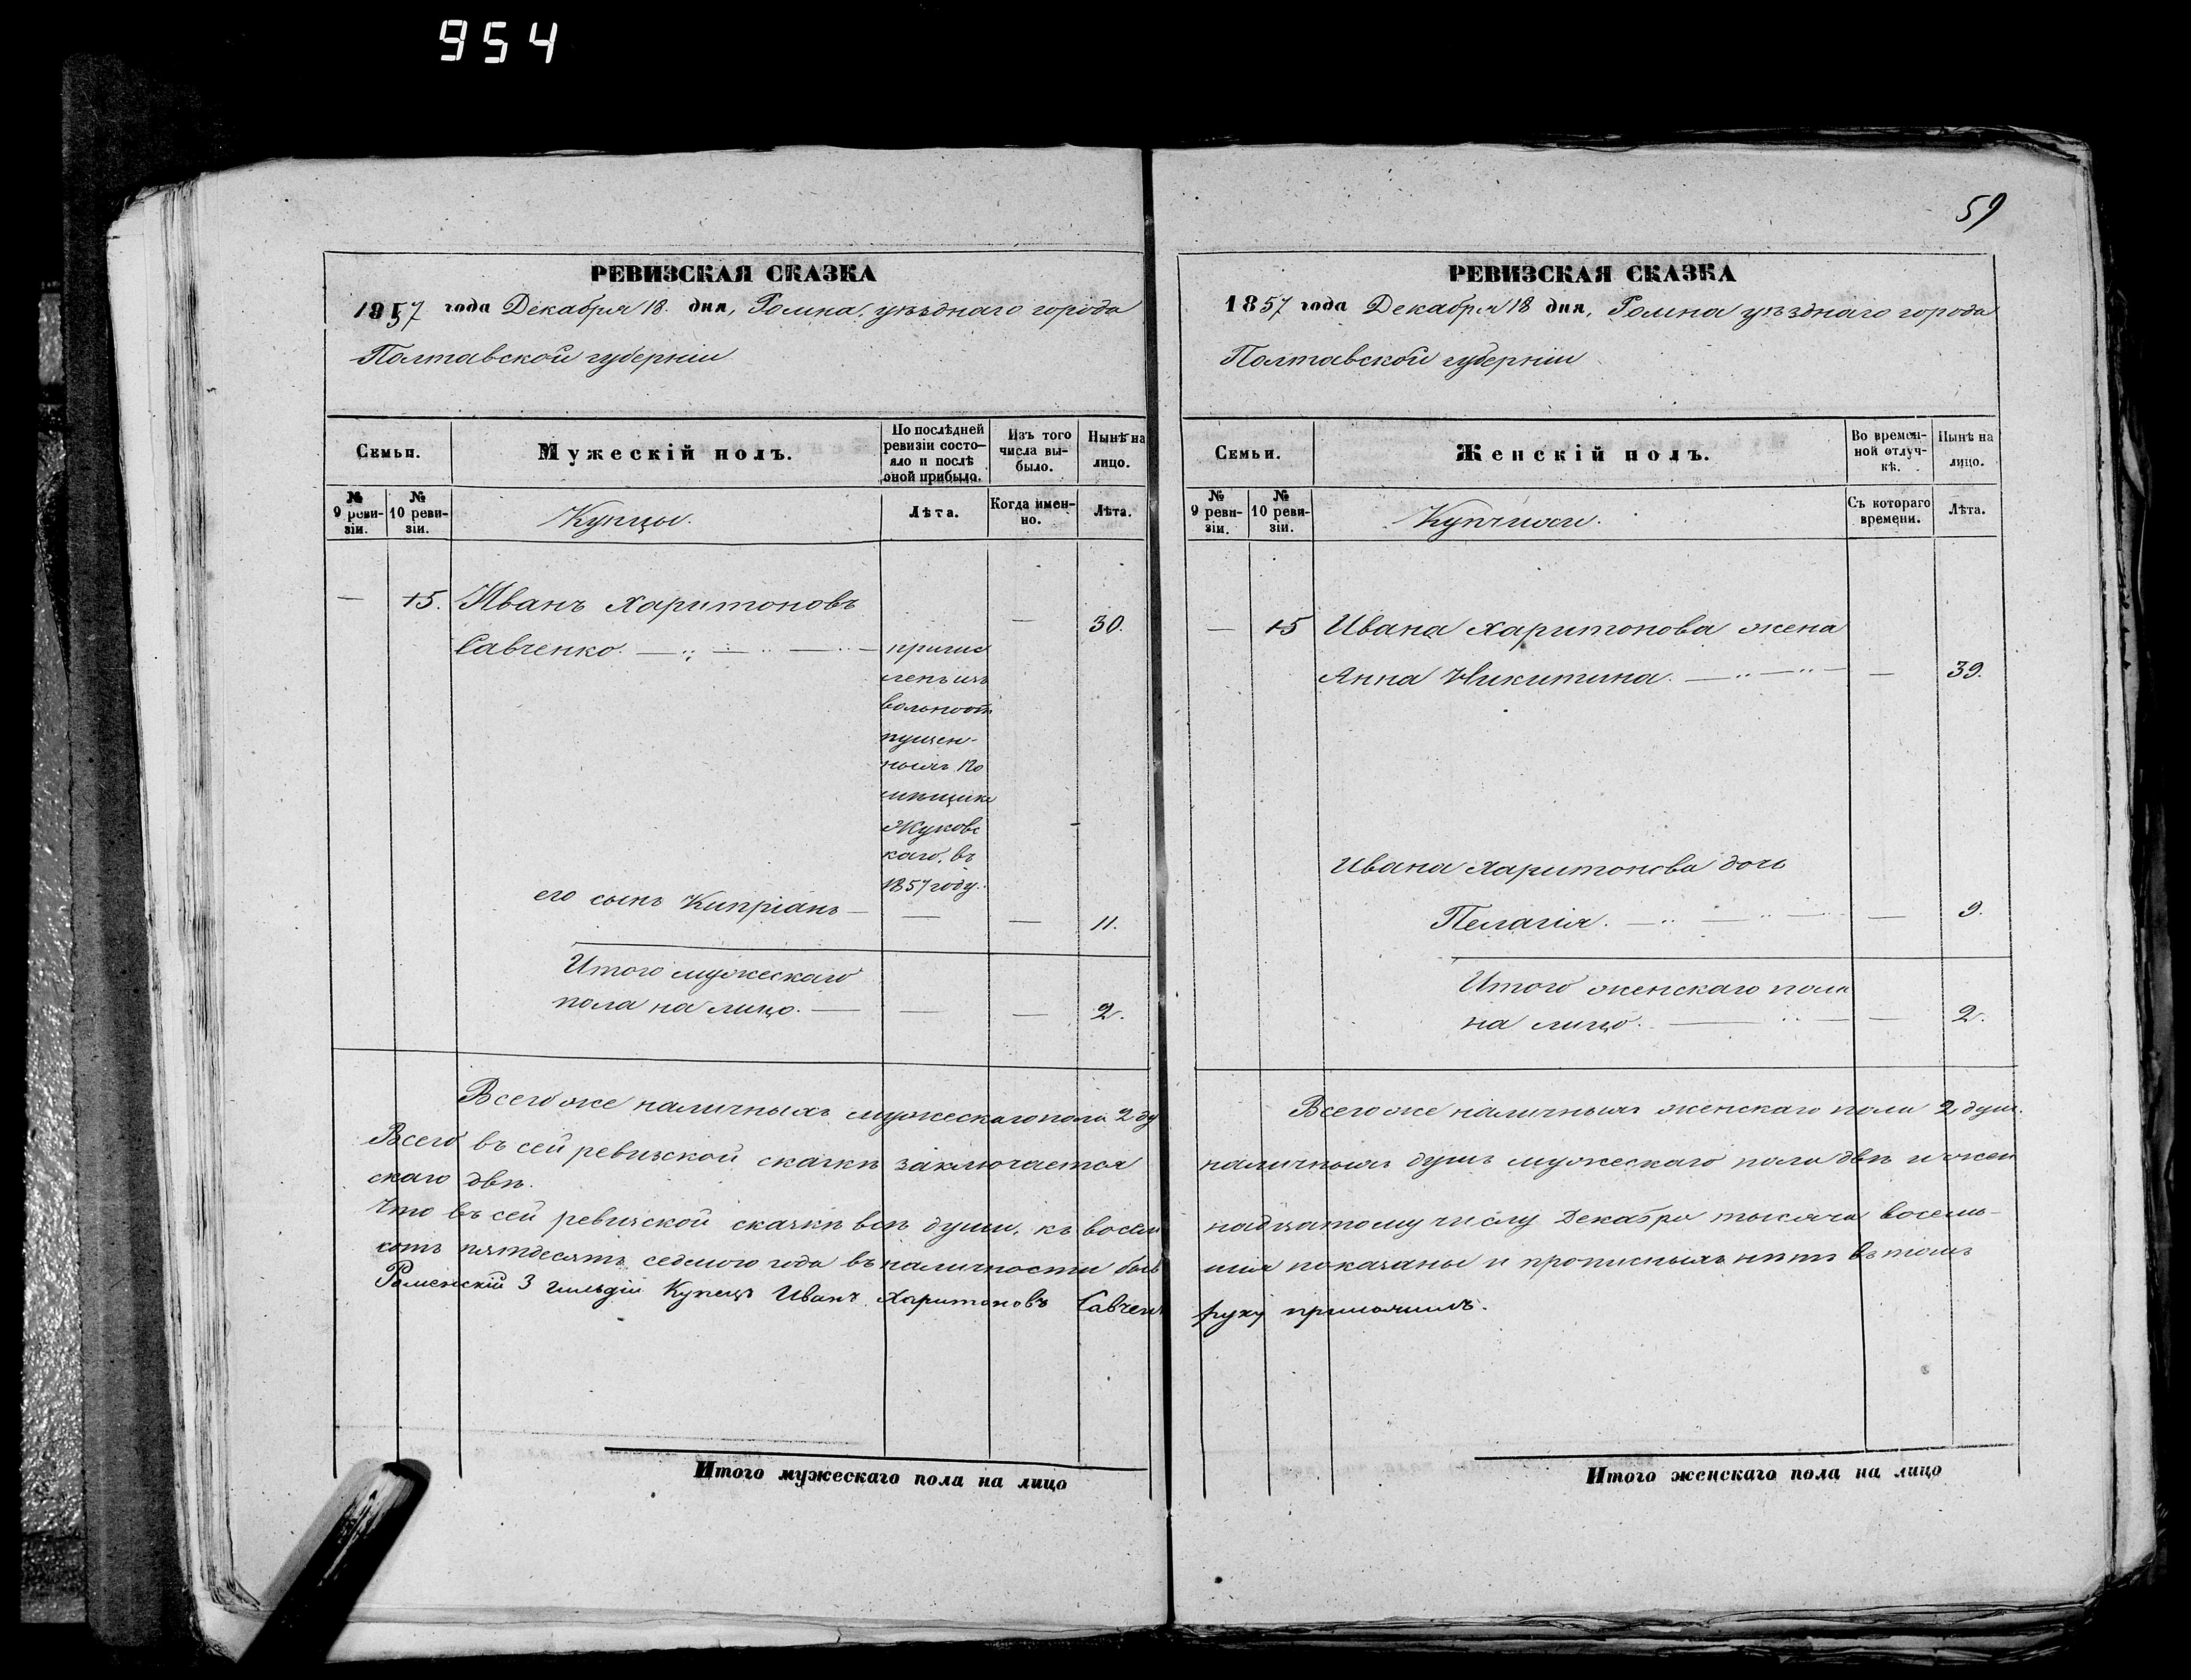 954
РЕВИЗСКАЯ СКАЗКА
1857 года Декабря 18. дня, Ромна, уѣзднаго города
Полтавской губерніи
Семьи.
Мужескій полъ.
По послѣдней
ревизіи состо-
яло и послѣ
оной прибыло.
Изъ того
числа вы-
было.
Нынѣ на
лицо.
№
9 реви-
зіи.
№
10 реви-
зіи.
Купцы.
Лѣта.
Когда имен-
но.
Лѣта.
— 15. Иванъ Харитоновъ
Савченко. — — 30.
причис
ленъ изъ
вольноот
пущен-
ныхъ По
мѣщика
Жуковс
каго, въ
1857 году.
его сынъ Кипріанъ — — — 11.
Итого мужескаго
пола на лицо. — — — 2.
Всего же наличныхъ мужескаго пола 2 ду
Всего въ сей ревизской сказкѣ заключается
скаго двѣ.
Что въ сей ревизской сказкѣ всѣ души, къ восем
сотъ пятдесятъ седмого года въ наличности быв
Роменскій 3 гильдіи Купецъ Иванъ Харитоновъ Савчен
Итого мужескаго пола на лицо
59
РЕВИЗСКАЯ СКАЗКА
1857 года Декабря 18 дня, Ромна уѣзднаго города
Полтавской губерніи
Семьи.
Женскій полъ.
Во времен-
ной отлуч-
кѣ.
Нынѣ на
лицо.
№
9 реви-
зіи.
№
10 реви-
зіи.
Съ котораго
времени.
Лѣта.
— 15 Ивана Харитонова жена
Анна Никитина. — — — 39.
Ивана Харитонова дочь
Пелагія. — — — 9.
Итого женскаго пола
на лицо. — — — 2.
Всего же наличныхъ женскаго пола 2 душ.
наличныхъ душъ мужескаго пола двѣ и жен
надцатому числу Декабря тысяча восемь-
шія показаны и прописныхъ нѣтъ въ томъ
руку
Итого женскаго пола на лицо